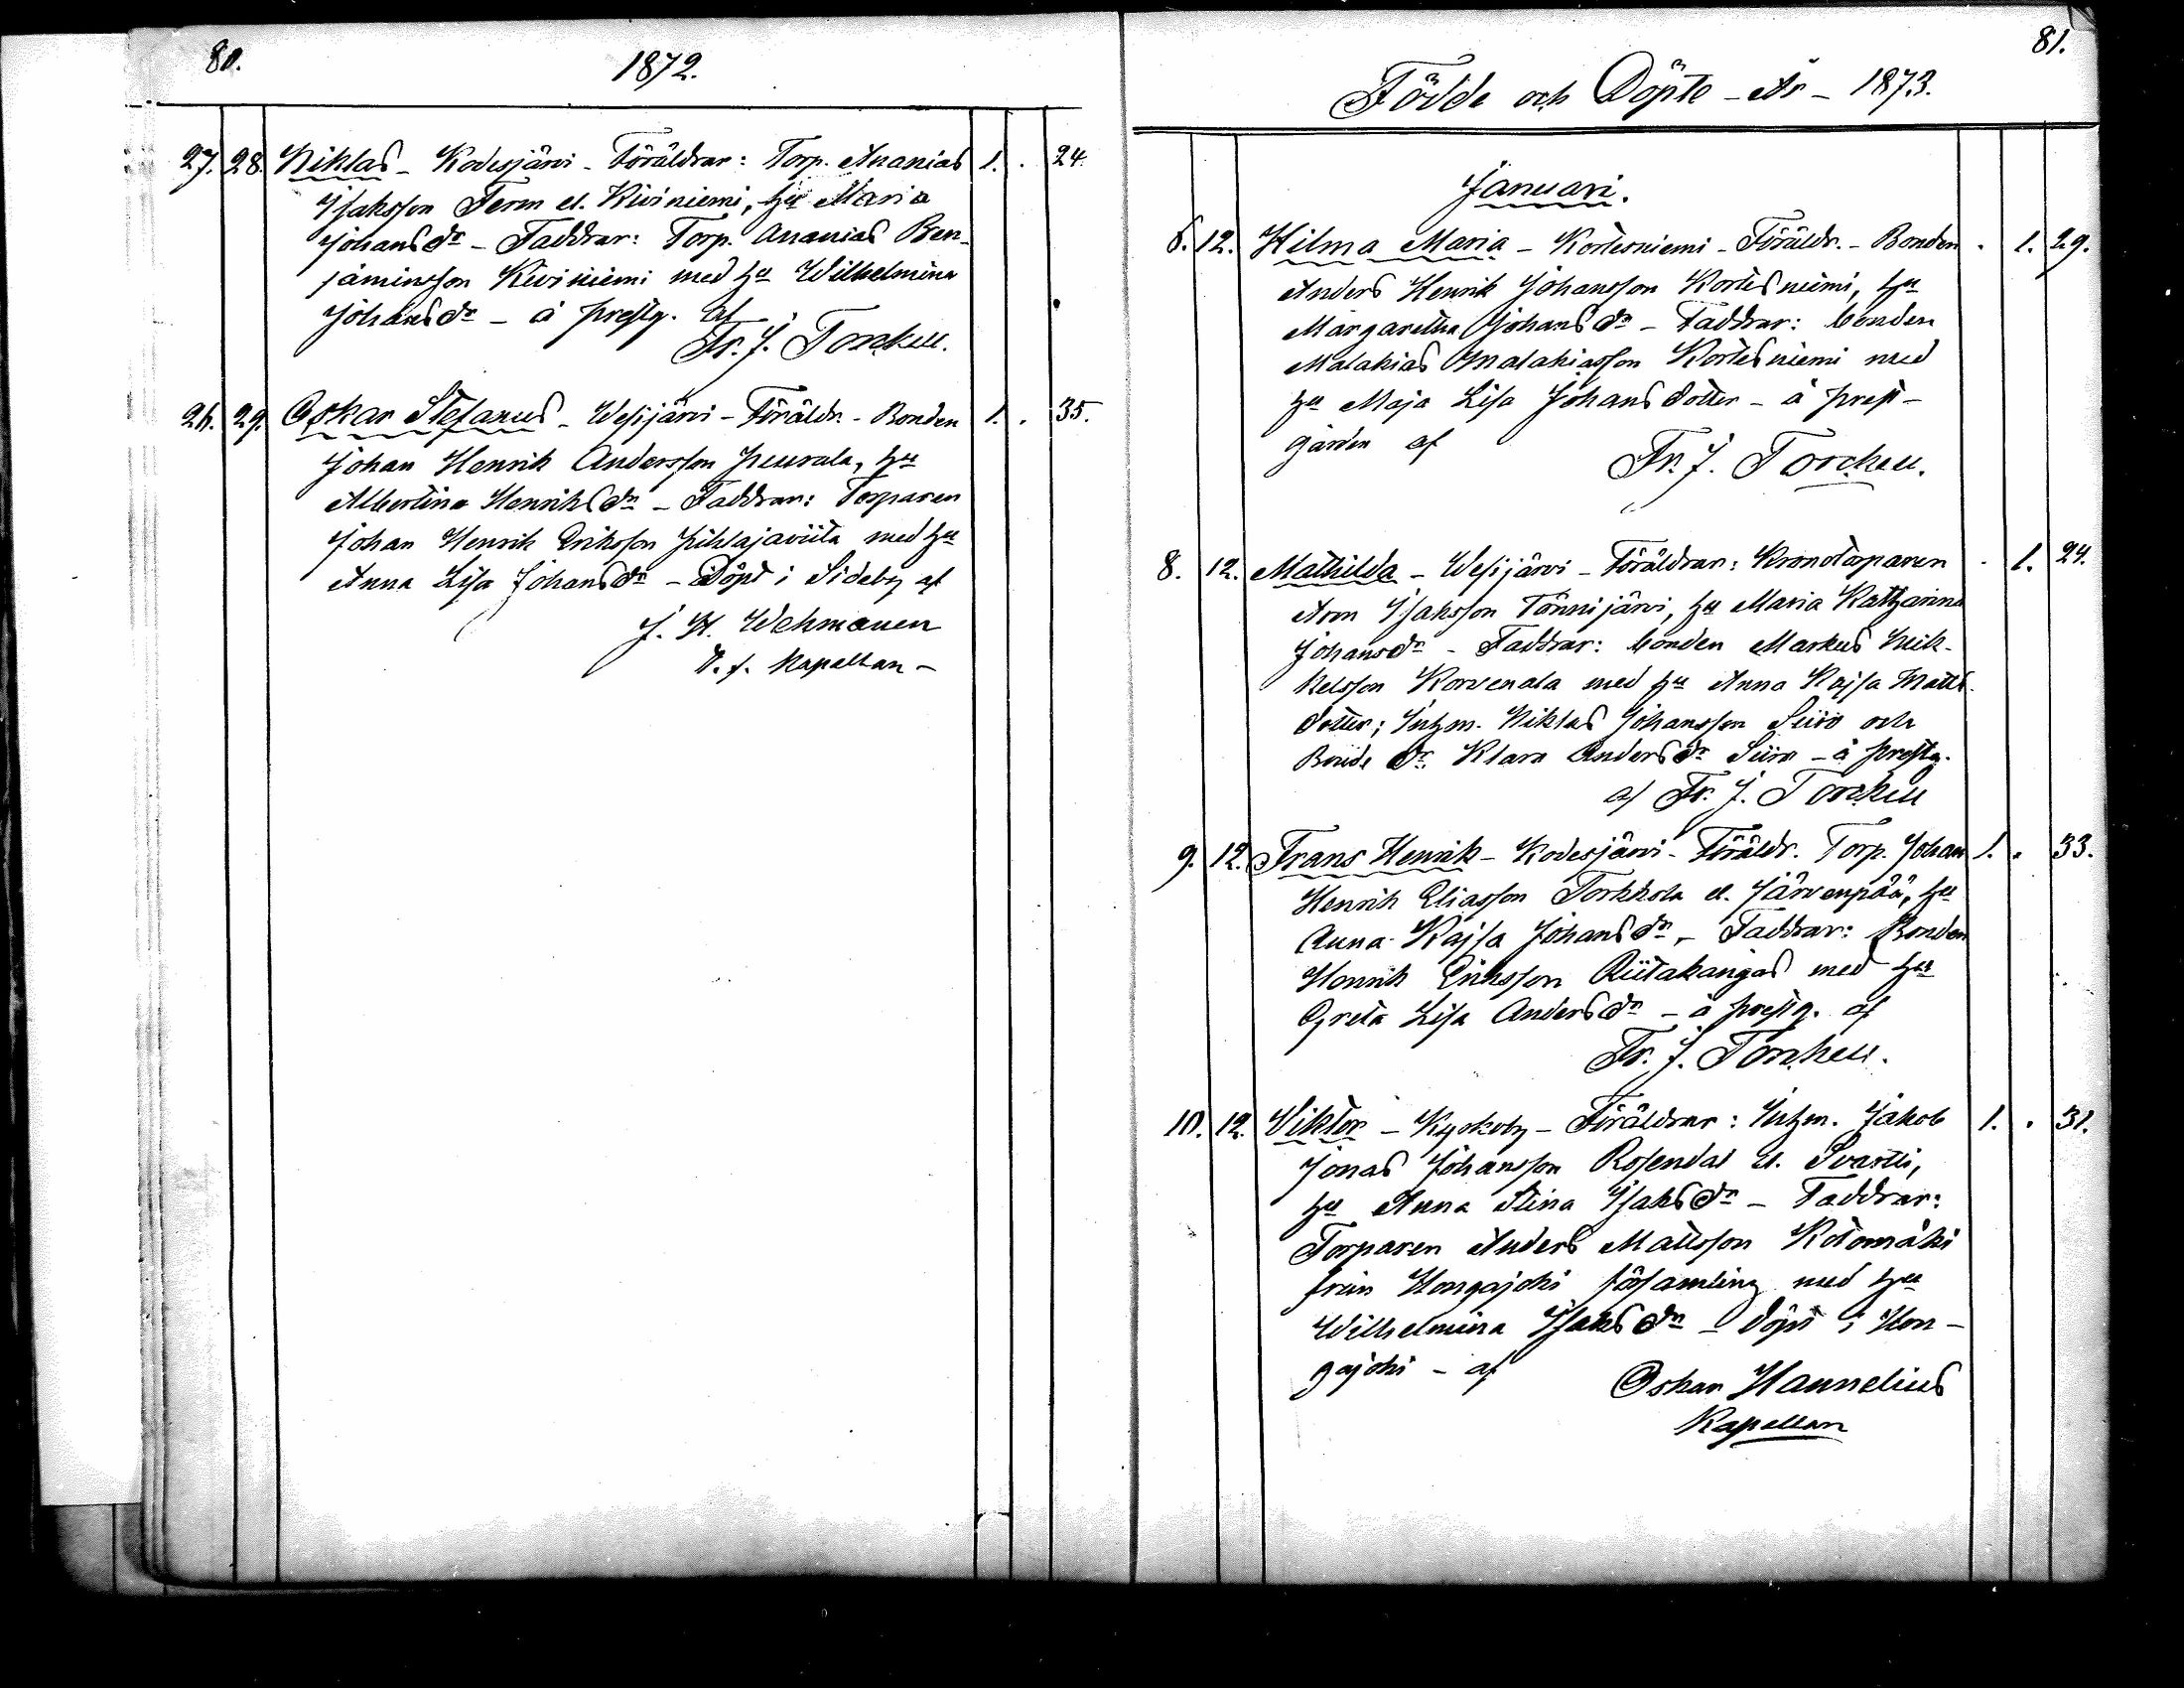 80.
1872.
27. 28. Niklas - Kodesjärvi - Föräldrar: Torp. Ananias 1. . 24.
Isaksson Ferm el. Kiviniemi, hu Maria
Johansdr - Faddrar: Torp. Ananias Ben-
jaminsson Kiviniemi med hu Wilhelmina
Johansdr - å prestg. af
Fr. J. Torckell.
29. Oskar Stefanus - Wesijärvi - Föräldr. - Bonden 1. . 35.
Johan Henrik Andersson Peurala, hu
Albertina Henriksdr - Faddrar: Torparen
Johan Henrik Eriksson Pihlajaviita med hu
Anna Lisa Johansdr - Döpt i Sideby af
J. H. Wehmanen
V. f. Kapellan -
81.
Födde och Döpte - År - 1873.
Januari.
6. 12. Hilma Maria - Kortesniemi - Föräldr. - Bonden . 1. 29.
Anders Henrik Johansson Kortesniemi, hu
Margaretha Johansdr - Faddrar: bonden
Malakias Malakiasson Kortesniemi med
hu Maja Lisa Johansdotter - å prest-
gården af
Fr. J. Torckell.
8. 12. Mathilda - Wesijärvi - Föräldrar: Kronotorparen . 1. 24.
Aron Isaksson Tönnijärvi, hu Maria Katharina
Johansdr - Faddrar: bonden Markus Mik-
kelsson Korvenala med hu Anna Kajsa Matts-
dotter; Inhm. Niklas Johansson Siiro och
Bonde dr. Klara Andersdr Siiro - å prestg.
af Fr. J. Torckell
9. 12. Frans Henrik - Kodesjärvi - Föräldr. Torp. Johan 1. . 33.
Henrik Eliasson Torkkola el. Järvenpää, hu
Anna Kajsa Johansdr, - Faddrar: Bonden
Henrik Eriksson Riitakangas med hu
Greta Lisa Andersdr - å prestg. af
Fr. J. Torckell.
10. 12. Viktor - Kyrkoby - Föräldrar: Inhm. Jakob 1. . 31.
Jonas Johansson Rosendal el. Svartti,
hu Anna Stina Isaksdr - Faddrar:
Torparen Anders Mattsson Kotomäki
från Hongajoki församling med hu
Wilhelmina Isaksdr - döpt i Hon-
gajoki - af
Oskar Hannelius
Kapellan